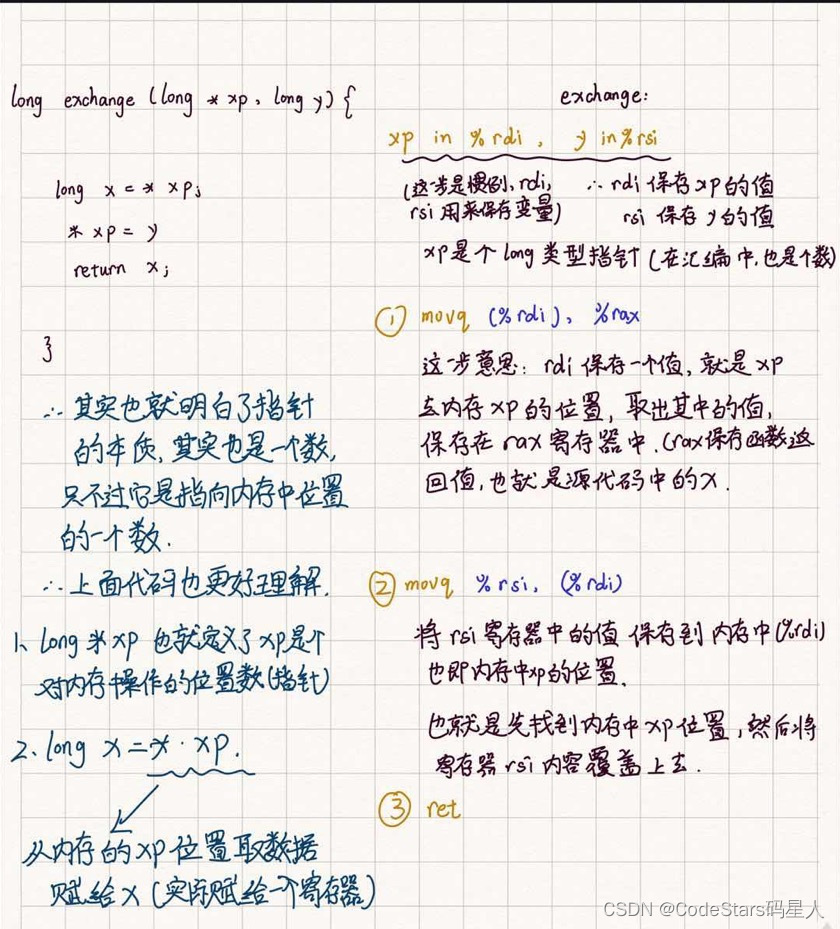 long exchange (long * xp, long y) {
long x = * xp;
* xp = y
return x;
}
∴ 其实也就明白了指针
的本质, 其实也是一个数,
只不过它是指向内存中位置
的一个数.
∴ 上面代码也更好理解.
1、long * xp 也就定义了 xp是个
对内存中操作的位置数(指针)
2、long x = * · xp.
从内存的xp位置取数据
赋给x (实际赋给一个寄存器)
exchange:
xp in %rdi, y in %rsi
(这步是惯例, rdi,
rsi 用来保存变量)
∴ rdi 保存 xp 的值
rsi 保存 y 的值
xp是个 long 类型指针 (在汇编中, 也是个数)
① movq (%rdi), %rax
这步意思: rdi 保存一个值, 就是 xp
去内存 xp 的位置, 取出其中的值,
保存在 rax 寄存器中. (rax保存函数返
回值, 也就是源代码中的 x.
② movq %rsi, (%rdi)
将 rsi 寄存器中的值 保存到 内存中 (%rdi)
也即内存中xp的位置.
也就是先找到内存中 xp 位置, 然后将
寄存器 rsi 内容覆盖上去.
③ ret
CSDN @CodeStars码星人